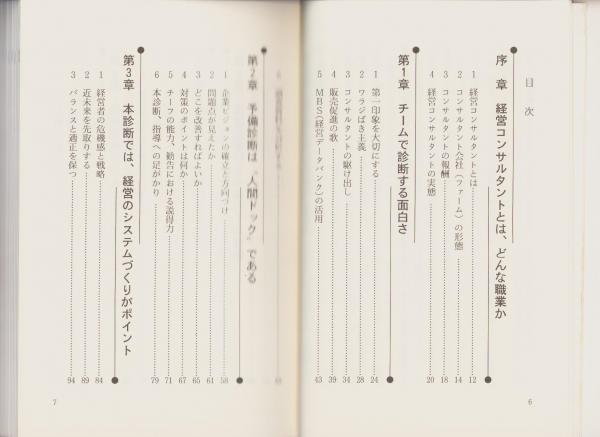 目次
序章 経営コンサルタントとは、どんな職業か
1 経営コンサルタントとは 12
2 コンサルタント会社(ファーム)の形態 14
3 コンサルタントの報酬 18
4 経営コンサルタントの実態 20
第1章 チームで診断する面白さ
1 第一印象を大切にする 24
2 ワラジばき主義 28
3 コンサルタントの駆け出し 34
4 販売促進の歌 39
5 MBS(経営データバンク)の活用 43
6
第2章 予備診断は“人間ドック”である
1 企業ビジョンの確立と方向づけ 58
2 問題点が見えたか 61
3 どこを改善すればよいか 65
4 対策のポイントは何か 67
5 チーフの能力、勧告における説得力 71
6 本診断、指導への足がかり 79
第3章 本診断では、経営のシステムづくりがポイント
1 経営者の危機感と戦略 84
2 近未来を先取りする 89
3 バランスと適正を保つ 94
7